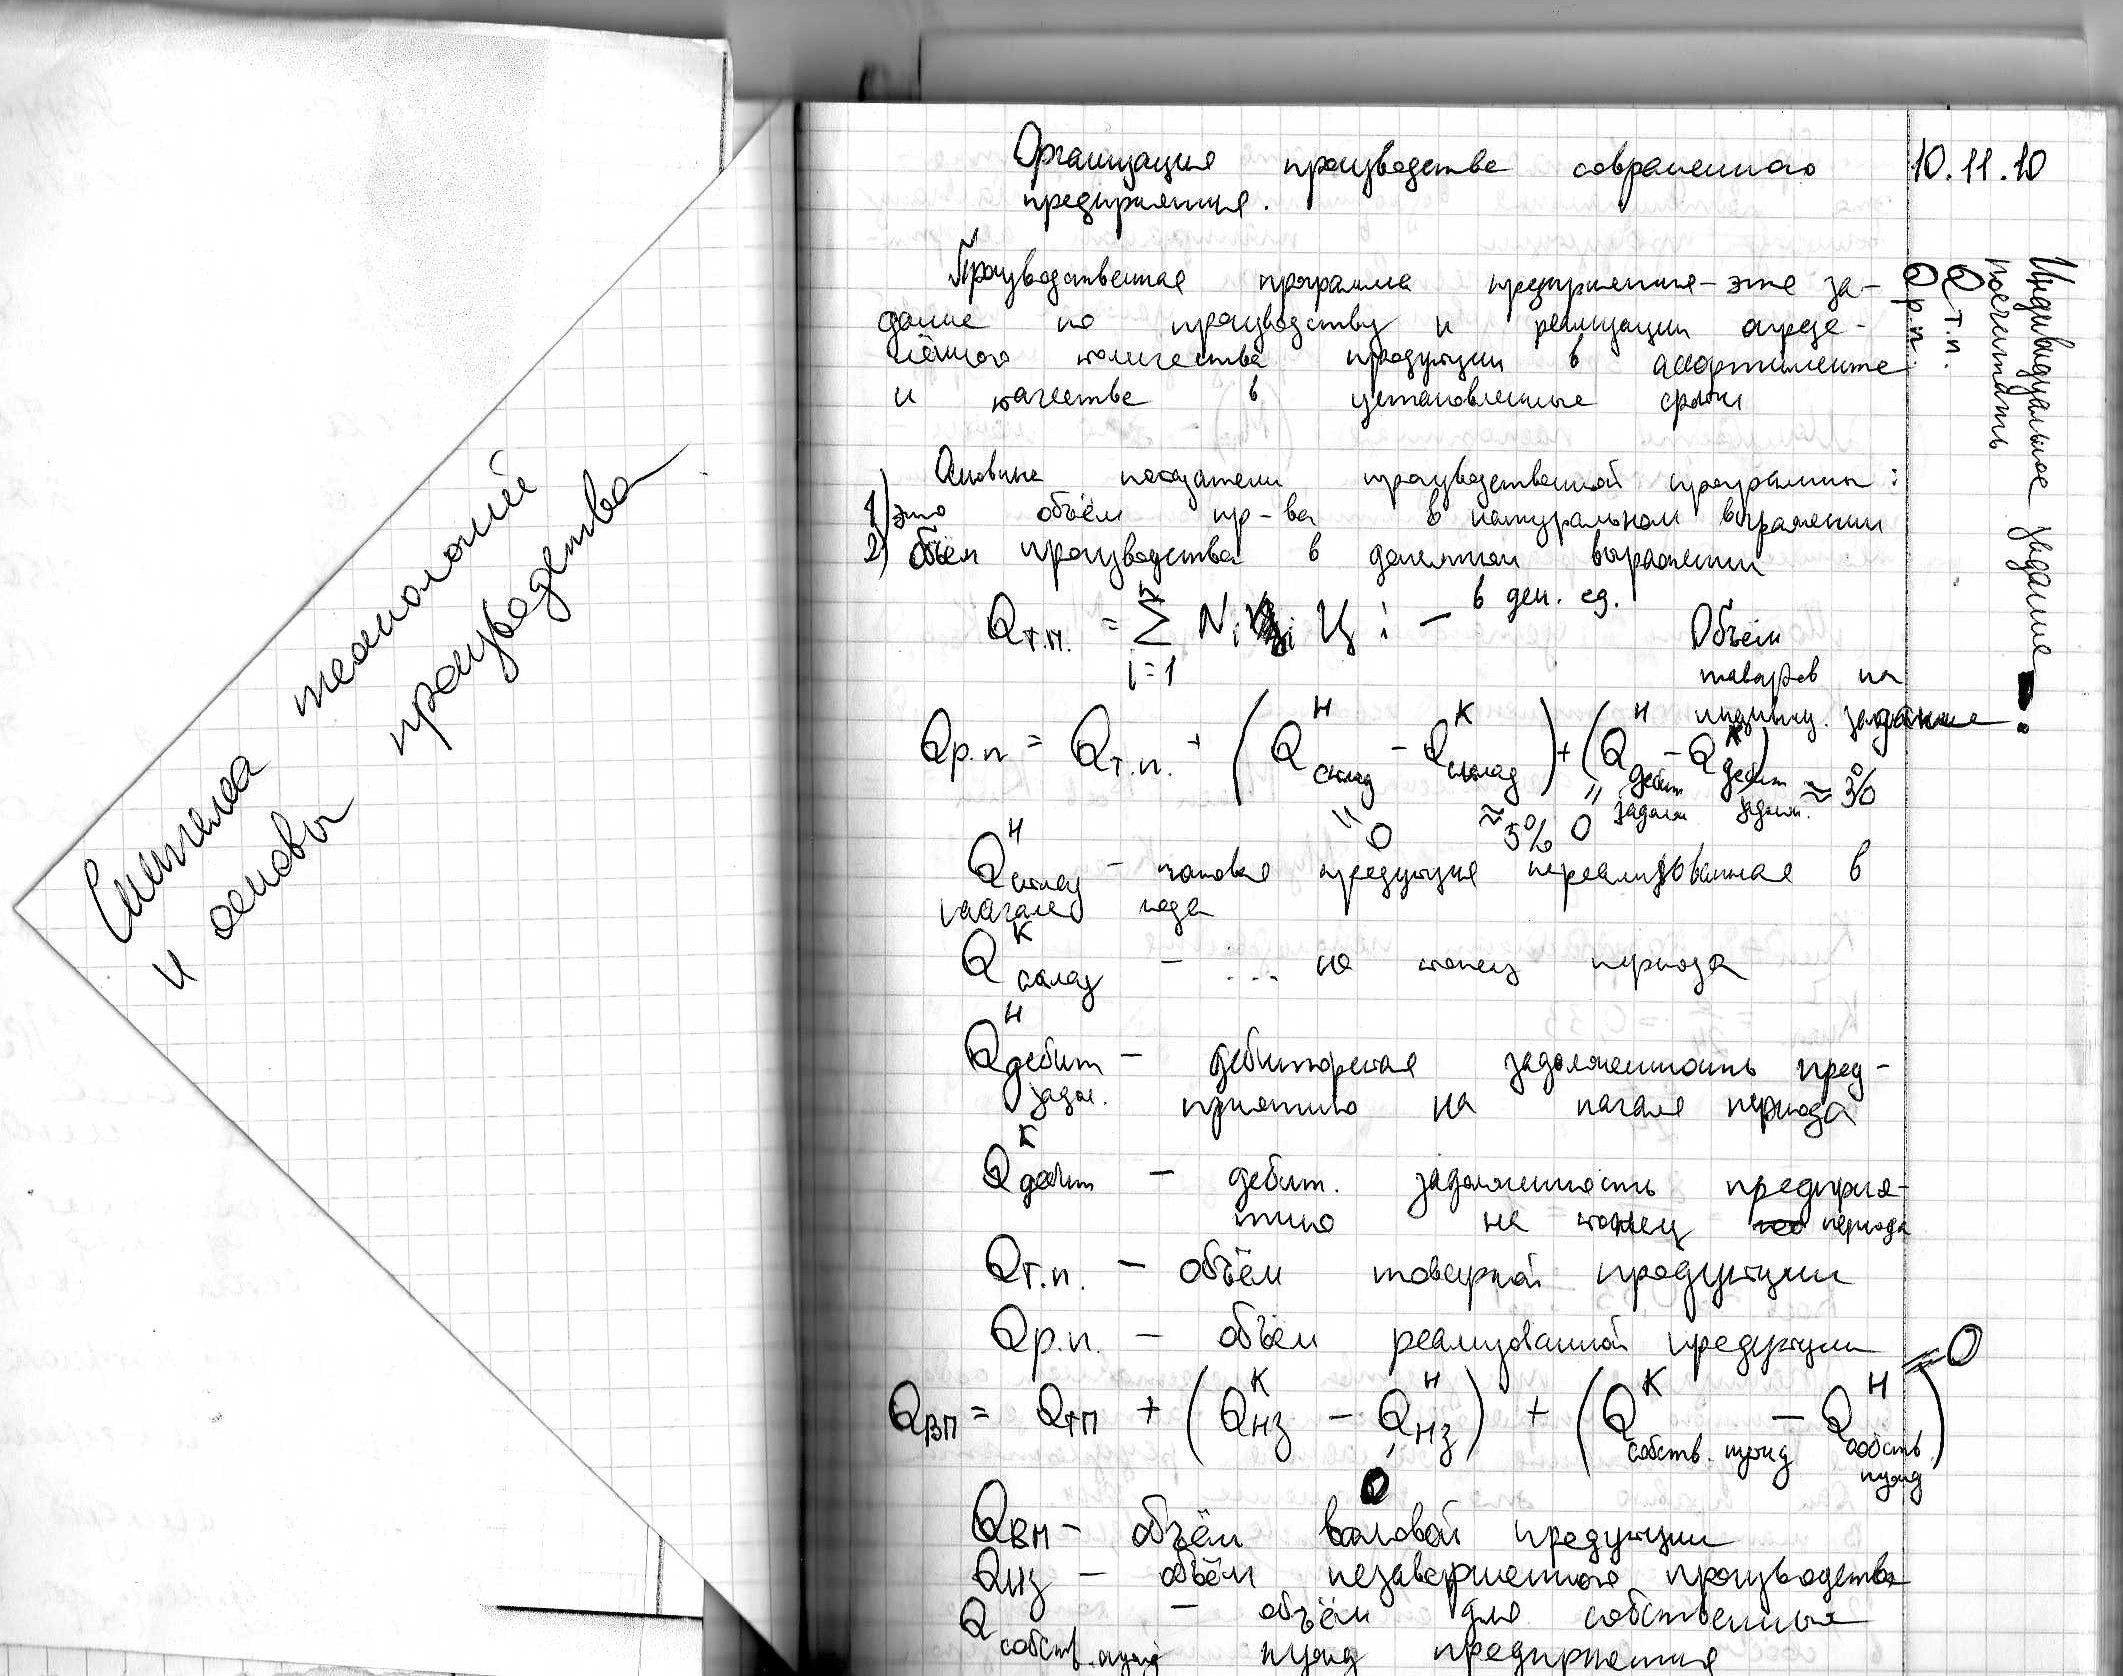 Система технологий
и основы производства
Организация производства современного 10.11.10
предприятия.
Производственная программа предприятия - это за-
дание по производству и реализации опреде-
лённого количества продукции в ассортименте
и качестве в установленные сроки
Индивидуальное задание!
посчитать
Qт.п.
Qр.п.
Основные показатели производственной программы:
1) это объём пр-ва в натуральном выражении
2) Объём производства в денежном выражении
Qт.п. = Σ Ni Цi - в ден. ед.
n
i=1
Объём
товаров на
индивид. задание
Qр.п = Qт.п. + (Qᴴсклад - Qᴷсклад) + (Qᴴдебит задолж - Qᴷдебит задолж.)
= 0 ≈ 5% = 0 ≈ 3%
Qᴴсклад - готовая продукция нереализованная в
начале года
Qᴷсклад - ... на конец периода
Qᴴдебит задол. - дебиторская задолженность пред-
приятию на начале периода
Qᴷдебит - дебит. задолженность предприя-
тию на конец периода
Qт.п. - объём товарной продукции
Qр.п. - объём реализованной продукции
Qвп = Qтп + (Qᴷнз - Qᴴнз) + (Qᴷсобств. нужд - Qᴴсобств. нужд) = 0
0
Qвп - объём валовой продукции
Qнз - объём незавершенного производства
Qсобств. нужд - объём для собственных
нужд предприятия